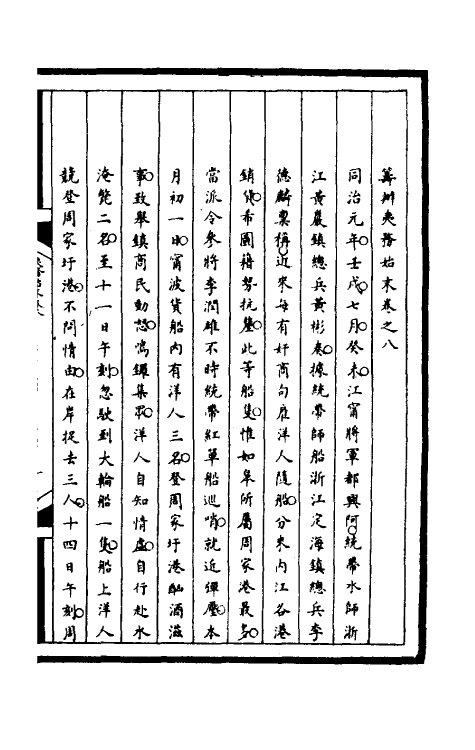 籌辦夷務始末卷之八
同治元年壬戌七月癸未江甯將軍都興阿統帶水師浙
江黃巖鎮總兵黃彬奏據統帶師船浙江定海鎮總兵李
德麟稟稱近來每有奸商勾雇洋人隨船分來內江各港
銷貨希圖藉勢抗釐此等船隻惟如皋所屬周家港最多
當派令參將李潤雄不時統帶紅單船巡哨就近彈壓本
月初一日甯波貨船內有洋人三名登周家圩港酗酒滋
事致舉鎮商民動怒鳴鑼集眾洋人自知情虛自行赴水
淹斃二名至十一日午刻忽駛到大輪船一隻船上洋人
競登周家圩港不問情由在岸捉去三人十四日午刻周